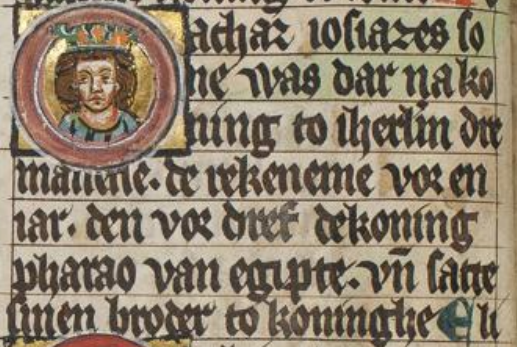 achaz iosiazes so
ne was dar na ko
ning to iherlm dre
manthe. de rekeneme vor en
iar. den vor dref de koning
pharao van egipte. vn̄ satte
sinen broder to koninghe E li